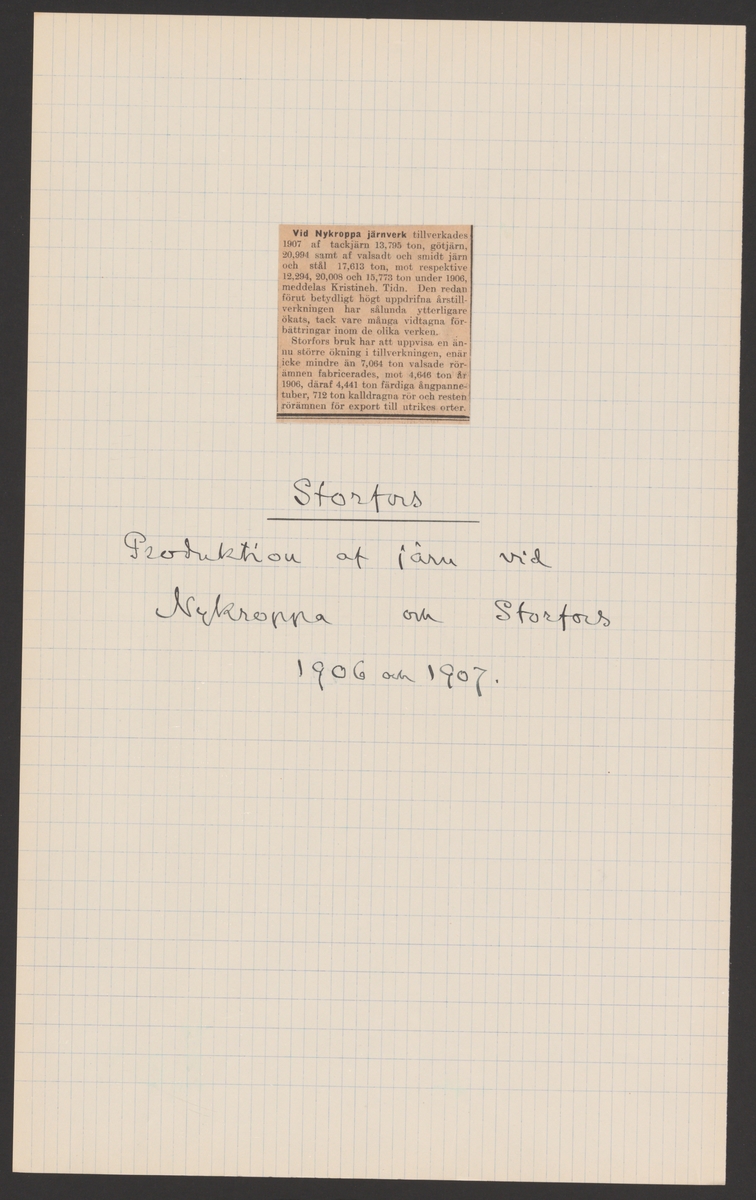 Vid Nykroppa järnverk tillverkades
1907 af tackjärn 13,795 ton, götjärn,
20,994 samt af valsadt och smidt järn
och stål 17,613 ton, mot respektive
12,294, 20,008 och 15,773 ton under 1906,
meddelas Kristineh. Tidn. Den redan
förut betydligt högt uppdrifna årstill-
verkningen har sålunda ytterligare
ökats, tack vare många vidtagna för-
bättringar inom de olika verken.
Storfors bruk har att uppvisa en än-
nu större ökning i tillverkningen, enär
icke mindre än 7,064 ton valsade rör-
ämnen fabricerades, mot 4,646 ton år
1906, däraf 4,441 ton färdiga ångpanne-
tuber, 712 ton kalldragna rör och resten
rörämnen för export till utrikes orter.
Storfors
Produktion af järn vid
Nykroppa och Storfors
1906 och 1907.